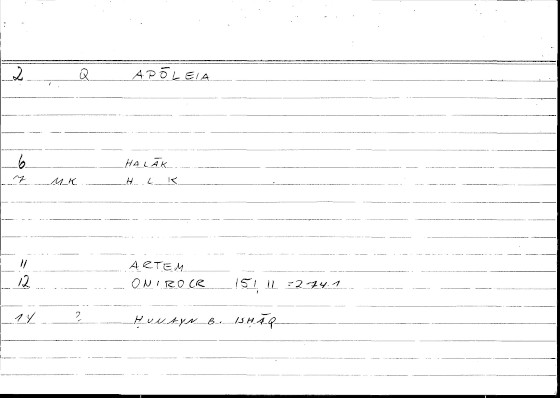 2 Q APŌLEIA
6 HALĀK
7 MK H L K
11 ARTEM
12 ONIROCR 151, 11 = 274.1
14 ? ḤUNAYN B. ISḤĀQ